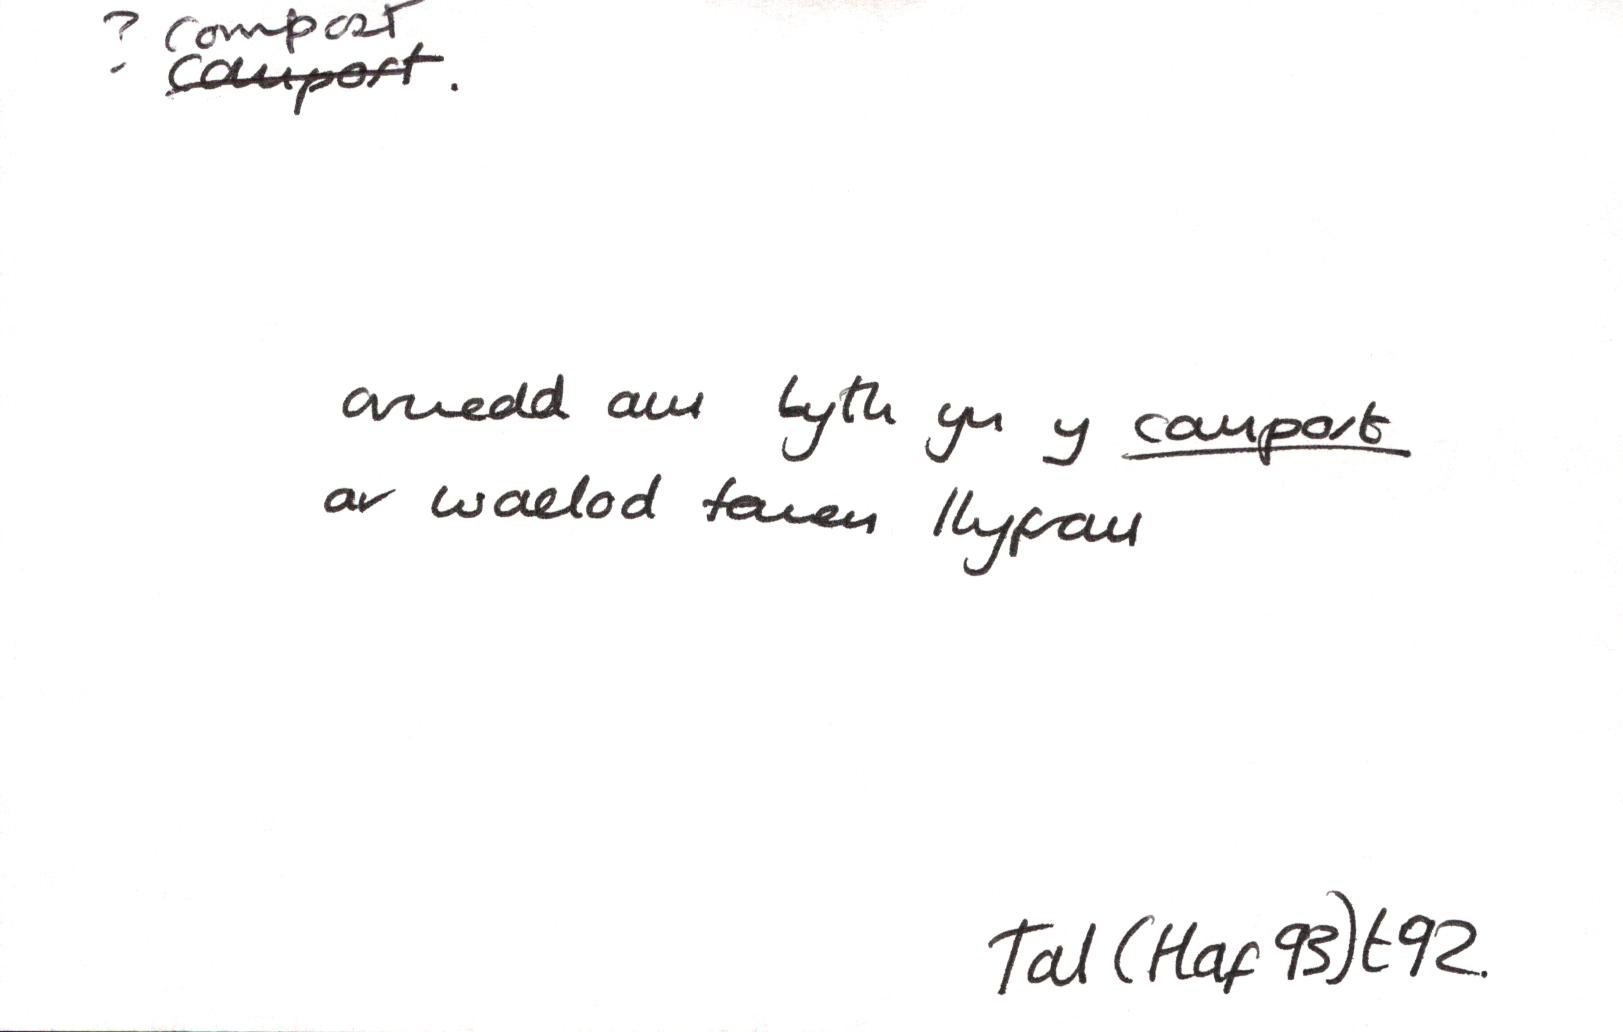 ? compost
Comport.
orwedd am byth yn y comport
ar waelod tomen llyfrau
Tal (Haf 93) t92.